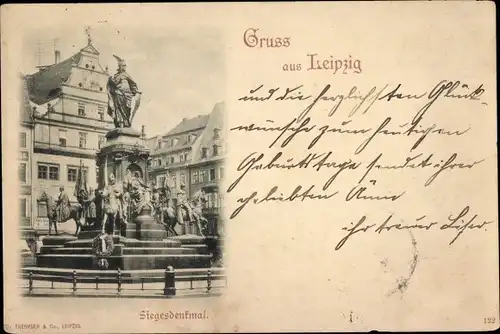 Gruss
aus Leipzig
und die herzlichsten Glück-
wünsche zum heutigen
Geburtstage sendet ihrer
geliebten Änne
ihr treuer
Siegesdenkmal.
& Co., LEIPZIG.
122